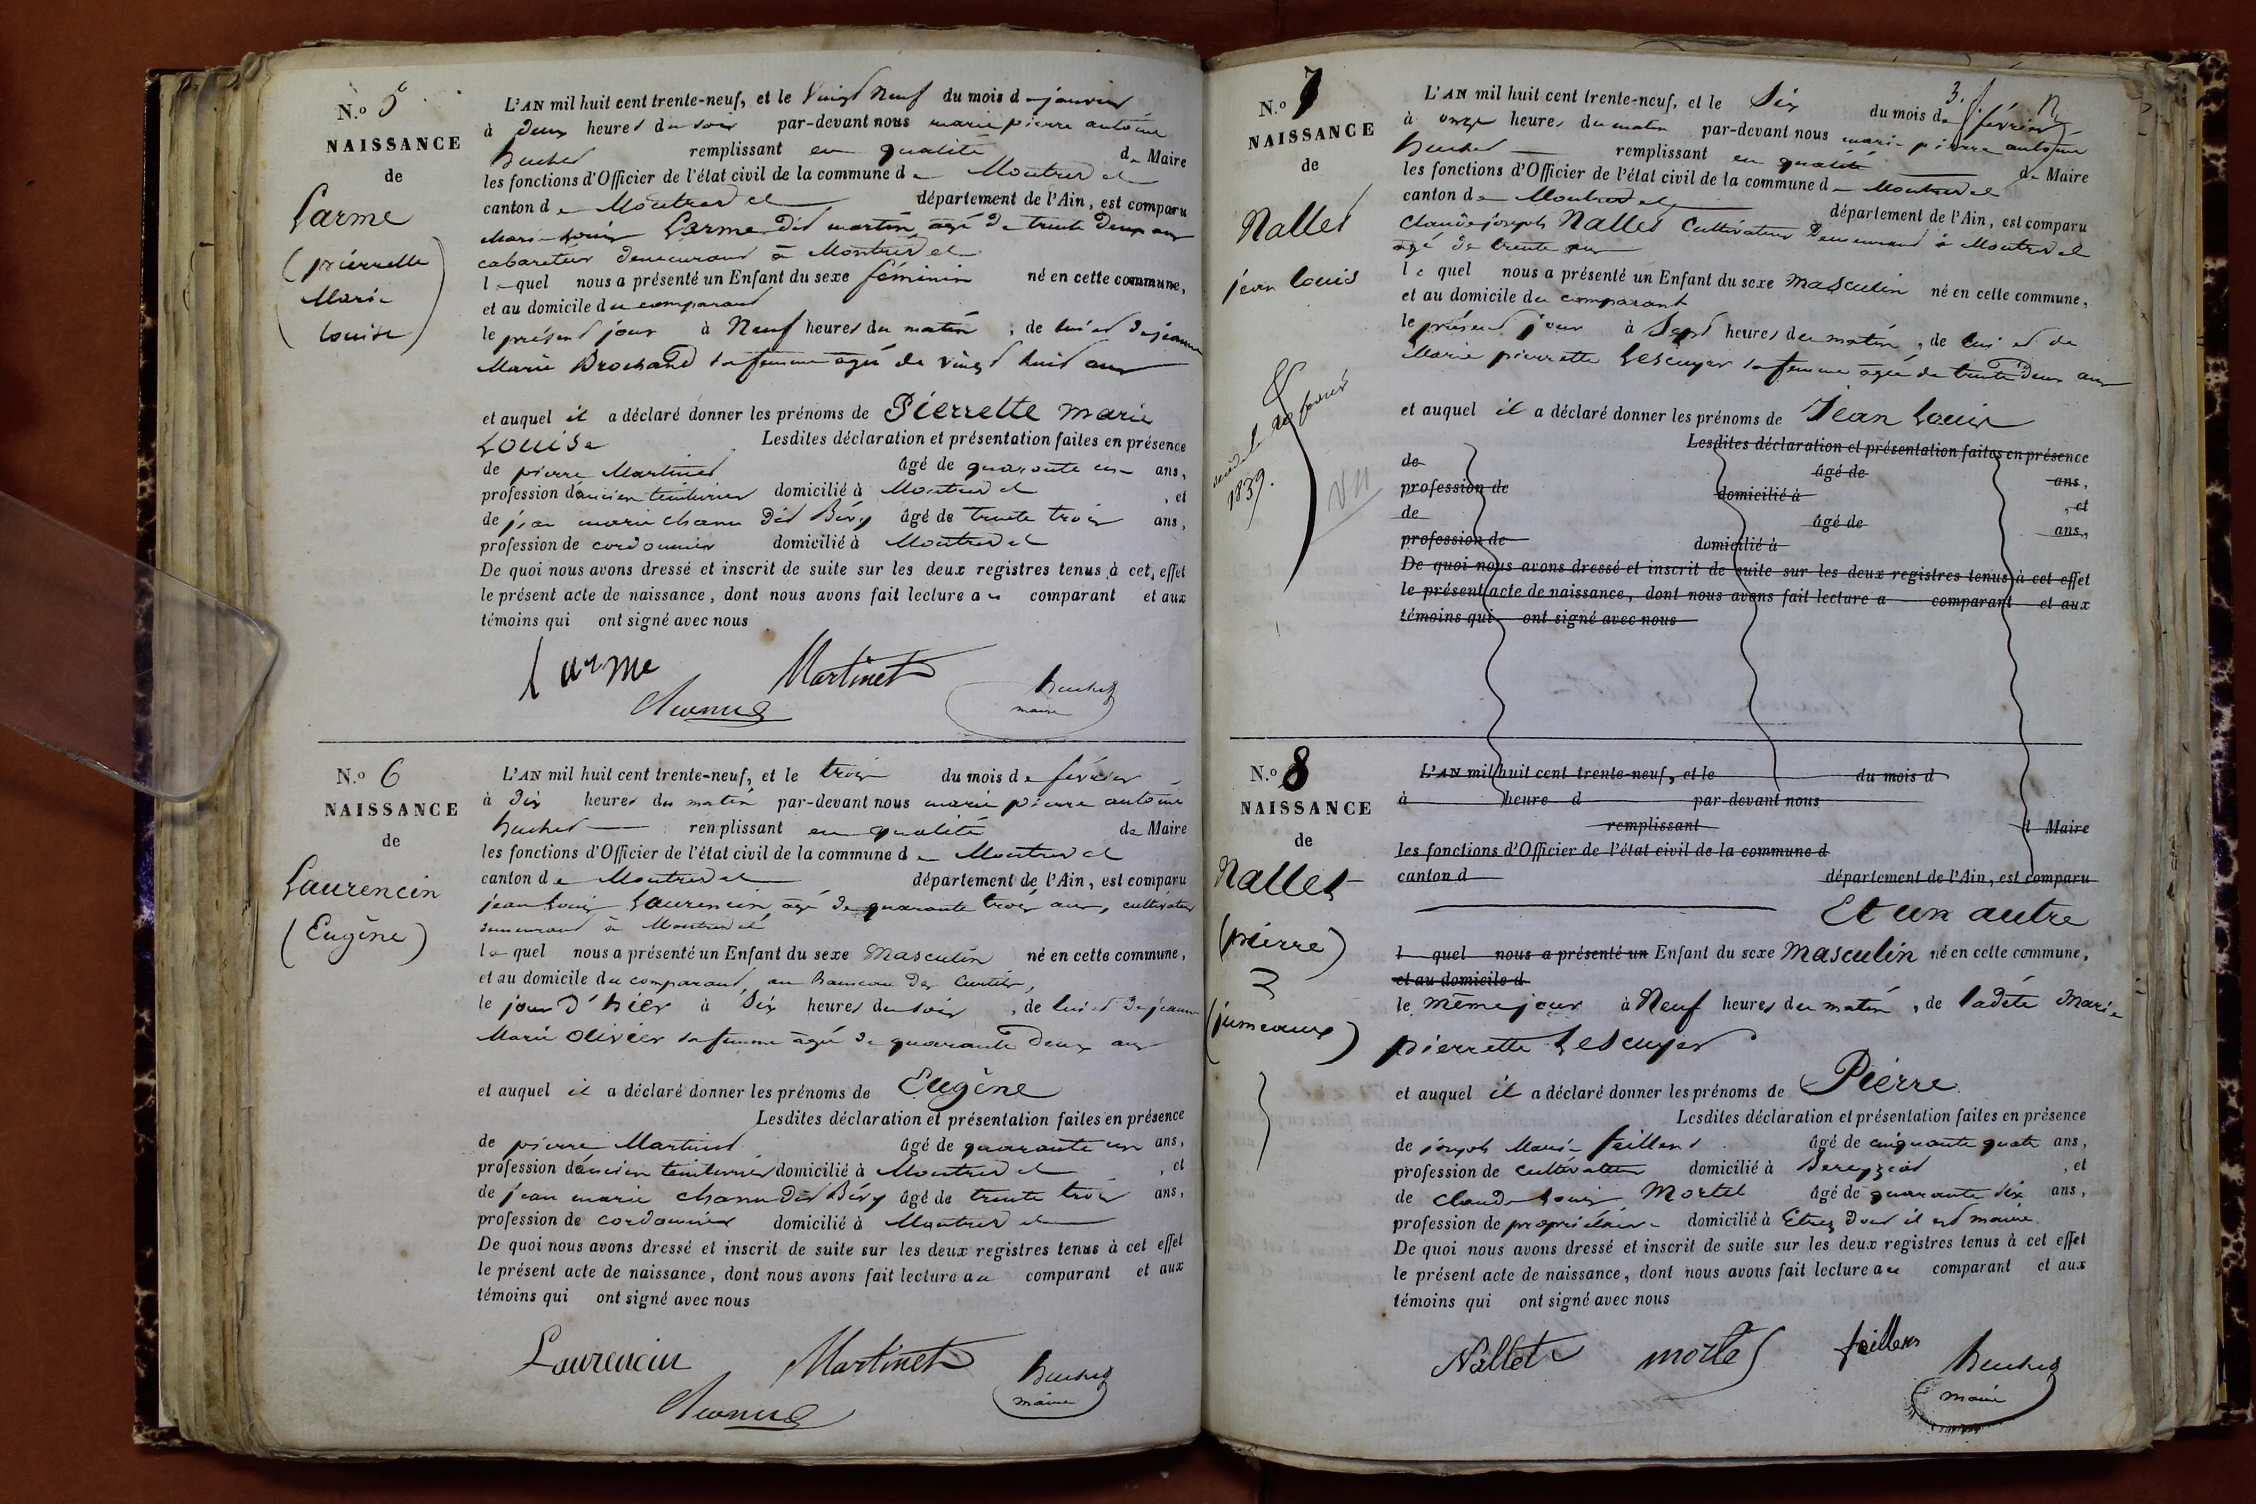 N.o 5
NAISSANCE
de
Larme
(pierrette
Marie
louise)
L'AN mil huit cent trente-neuf, et le Vingt Neuf du mois de janvier
à deux heures du soir par-devant nous marie pierre antoine
huchet remplissant en qualité de Maire
les fonctions d'Officier de l'état civil de la commune de Montrevel
canton de Montrevel département de l'Ain, est comparu
Marie Louis Larme dit martin âgé de trente deux ans
cabaretier demeurant à Montrevel
lequel nous a présenté un Enfant du sexe féminin né en cette commune,
et au domicile du comparant
le présent jour à Neuf heures du matin, de lui et de jeanne
Marie Brochand sa femme agée de vingt huit ans
et auquel il a déclaré donner les prénoms de Pierrette marie
Louise Lesdites déclaration et présentation faites en présence
de pierre Martinet âgé de quarante un ans,
profession d'ancien teinturier domicilié à Montrevel, et
de jean marie chanu dit Béry âgé de trente trois ans,
profession de cordonnier domicilié à Montrevel
De quoi nous avons dressé et inscrit de suite sur les deux registres tenus à cet effet
le présent acte de naissance, dont nous avons fait lecture au comparant et aux
témoins qui ont signé avec nous
Larme Martinet huchet
maire
N.o 6
NAISSANCE
de
Laurencin
(Eugène)
L'AN mil huit cent trente-neuf, et le trois du mois de février
à dix heures du matin par-devant nous marie pierre antoine
huchet remplissant en qualité de Maire
les fonctions d'Officier de l'état civil de la commune de Montrevel
canton de Montrevel département de l'Ain, est comparu
jean Louis Laurencin âgé de quarante trois ans, cultivateur
demeurant à Montrevel
lequel nous a présenté un Enfant du sexe Masculin né en cette commune,
et au domicile du comparant, au hameau des
le jour d'hier à Six heures du soir, de lui et de jeanne
Marie Olivier sa femme agée de quarante deux ans
et auquel il a déclaré donner les prénoms de Eugène
Lesdites déclaration et présentation faites en présence
de pierre Martinet âgé de quarante un ans,
profession d'ancien teinturier domicilié à Montrevel, et
de jean marie chanu dit Béry âgé de trente trois ans,
profession de cordonnier domicilié à Montrevel
De quoi nous avons dressé et inscrit de suite sur les deux registres tenus à cet effet
le présent acte de naissance, dont nous avons fait lecture au comparant et aux
témoins qui ont signé avec nous
Laurencin Martinet huchet
maire
N.o 7
NAISSANCE
de
Nallet
jean louis
1839.
vu
L'AN mil huit cent trente-neuf, et le Six du mois de février
à onze heures du matin par-devant nous marie pierre antoine
huchet remplissant en qualité de Maire
les fonctions d'Officier de l'état civil de la commune de Montrevel
canton de Montrevel département de l'Ain, est comparu
Claude joseph Nallet Cultivateur Demeurant à Montrevel
agé de trente ans
lequel nous a présenté un Enfant du sexe Masculin né en cette commune,
et au domicile du comparant
le présent jour à Sept heures du matin, de lui et de
Marie pierrette Lescuyer sa femme agée de trente deux ans
et auquel il a déclaré donner les prénoms de Jean Louis
Lesdites déclaration et présentation faites en présence
de âgé de ans,
profession de domicilié à , et
de âgé de ans,
profession de domicilié à
De quoi nous avons dressé et inscrit de suite sur les deux registres tenus à cet effet
le présent acte de naissance, dont nous avons fait lecture a comparant et aux
témoins qui ont signé avec nous
N.o 8
NAISSANCE
de
Nallet
(pierre)
(jumeaux)
L'AN mil huit cent trente-neuf, et le du mois d
à heure d par-devant nous
remplissant d Maire
les fonctions d'Officier de l'état civil de la commune d
canton d département de l'Ain, est comparu
Et un autre
l quel nous a présenté un Enfant du sexe Masculin né en cette commune,
et au domicile d
le même jour à Neuf heures du matin, de ladite Marie
pierrette Lescuyer
et auquel il a déclaré donner les prénoms de Pierre
Lesdites déclaration et présentation faites en présence
de joseph Marie feillens âgé de cinquante quatre ans,
profession de cultivateur domicilié à Bereyziat, et
de Claude Louis Mortel âgé de quarante six ans,
profession de propriétaire domicilié à Etrez dont il est maire
De quoi nous avons dressé et inscrit de suite sur les deux registres tenus à cet effet
le présent acte de naissance, dont nous avons fait lecture au comparant et aux
témoins qui ont signé avec nous
Nallet mortel feillens huchet
maire